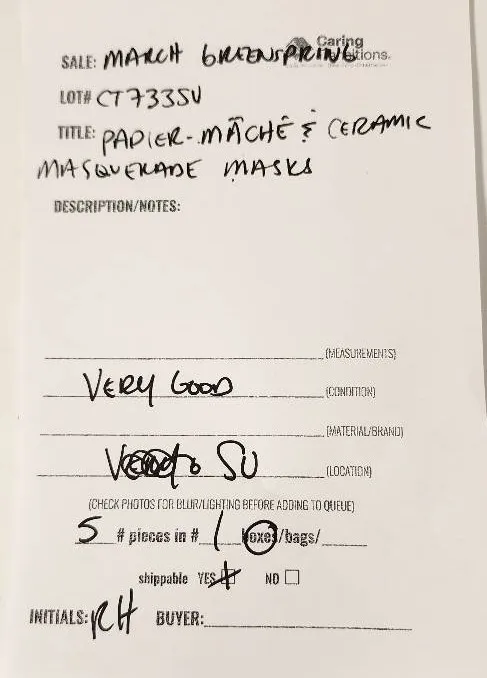 Caring
Transitions.
SALE: MARCH GREENSPRING
LOT# CT7335U
TITLE: PAPIER-MÂCHÊ & CERAMIC
MASQUERADE MASKS
DESCRIPTION/NOTES:
(MEASUREMENTS)
VERY GOOD (CONDITION)
(MATERIAL/BRAND)
SU (LOCATION)
(CHECK PHOTOS FOR BLUR/LIGHTING BEFORE ADDING TO QUEUE)
5 # pieces in # 1 boxes/bags/
shippable YES NO
INITIALS: RH BUYER: